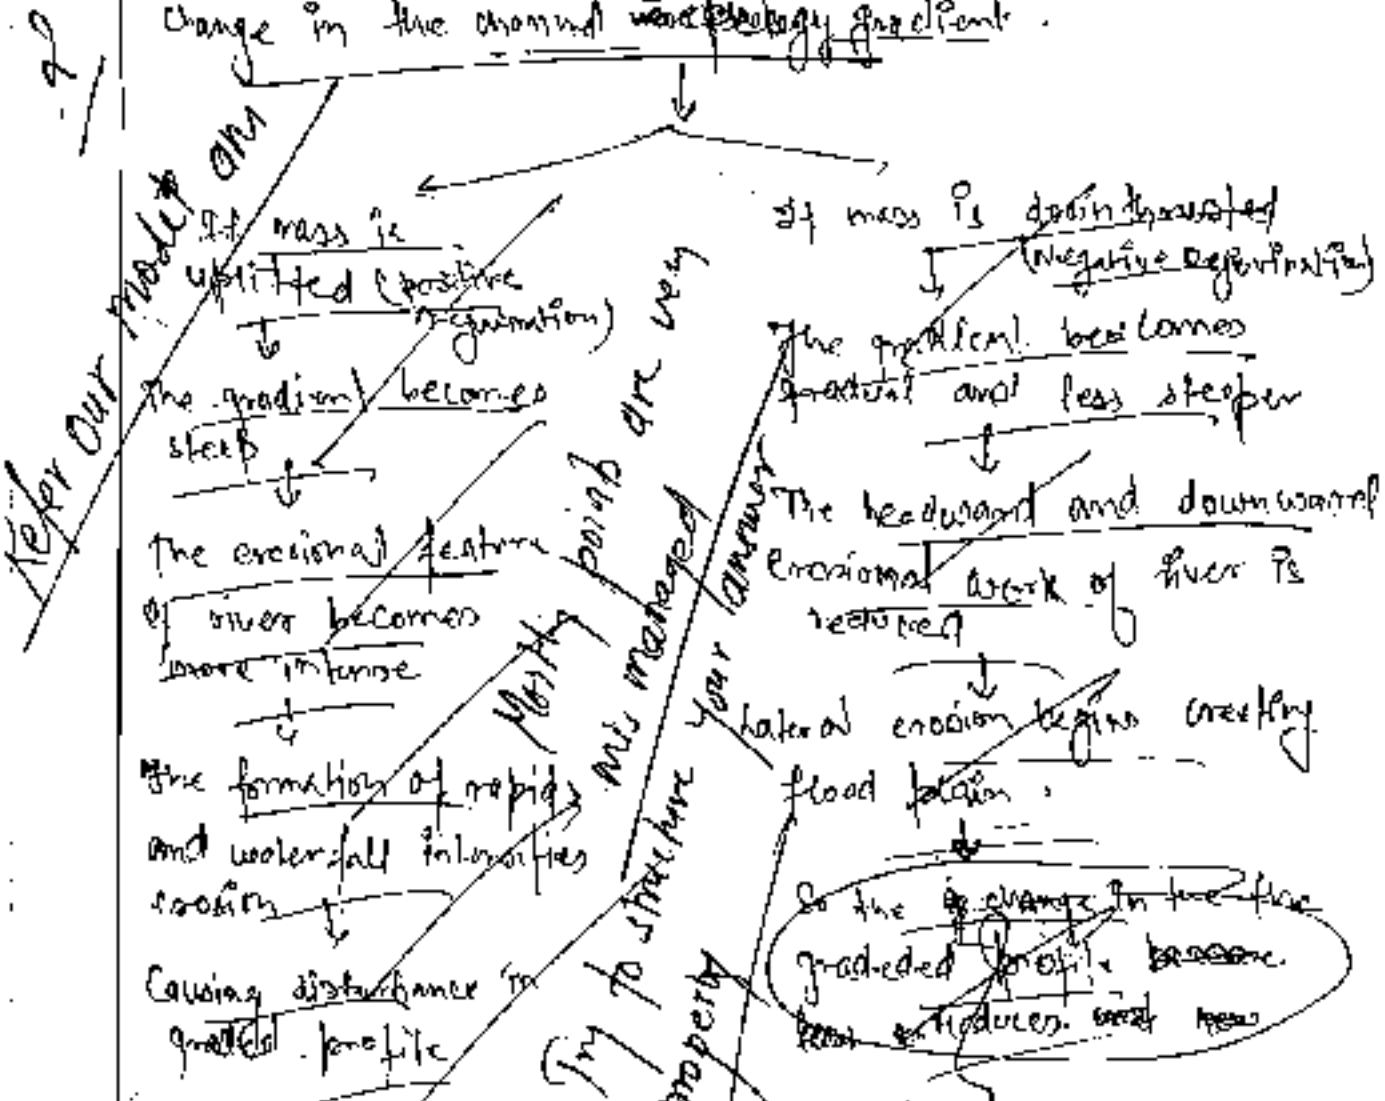 Change in the channel gradient.
If mass is
uplifted (positive
rejuvination)
The gradient becomes
steep
The erosional feature
of river becomes
more intense
The formation of rapids
and waterfall intensifies
erosion
Causing disturbance in
graded profile
If mass is downthrusted
(Negative Rejuvination)
The gradient becomes
gradual and less steeper
The headward and downward
erosional work of river is
reduced
Lateral erosion begins creating
flood plain.
So the change in the
gradeded profile
Refer our model ans
Mostly points are very
mis managed
Try to structure your answer
properly